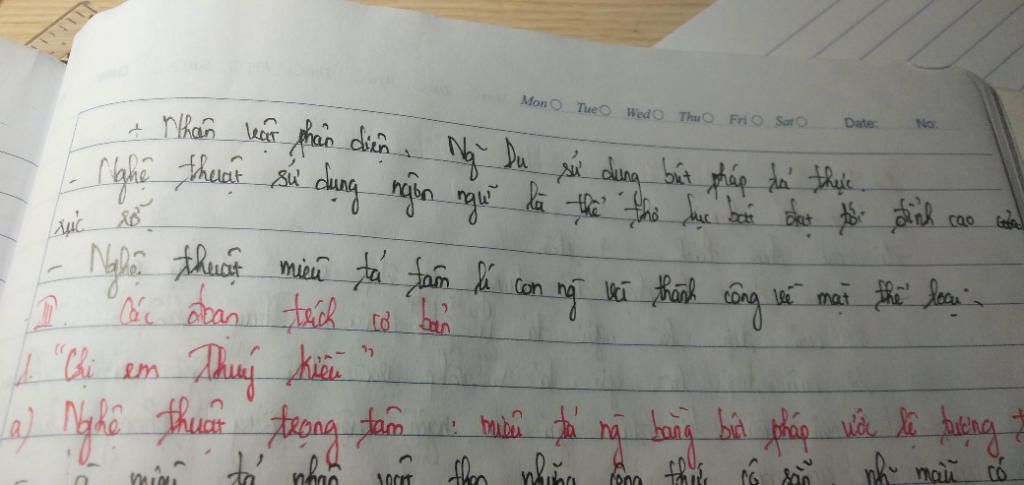 Mon Tue Wed Thu Fri Sat Date: No:
+ Nhân vật phản diện. Ng~ Du sử dụng bút pháp tả thực.
- Nghệ thuật sử dụng ngôn ngữ là thể thơ lục bát đạt tới đỉnh cao
rực rỡ
- Nghệ thuật miêu tả tâm lí con ng và thành công về mặt thể loại.
III. Các đoạn trích cơ bản
1. "Chị em Thuý Kiều"
a) Nghệ thuật trọng tâm: miêu tả ng bằng bút pháp ước lệ tượng
miêu tả nhân vật theo những công thức có sẵn, nh~ mẫu có